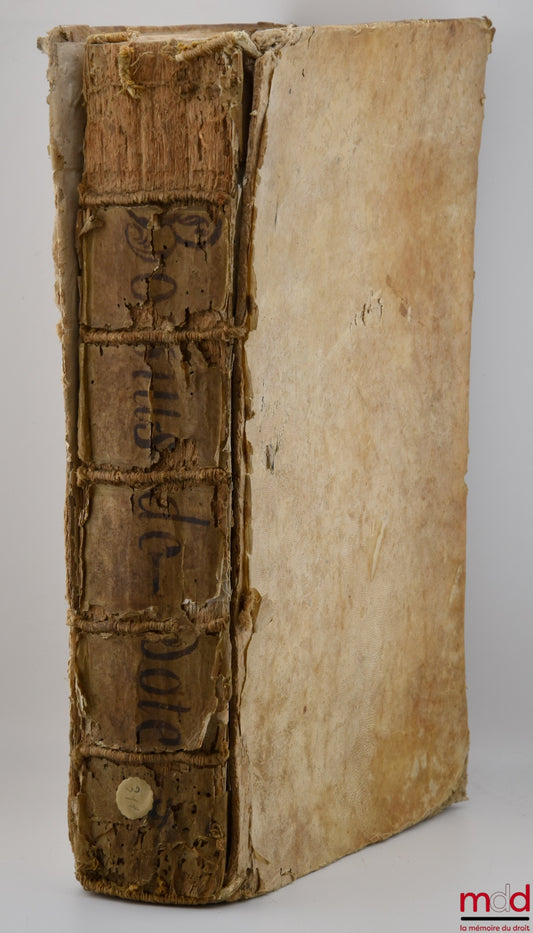 Bonus de Dote
mdd
la mémoire du droit